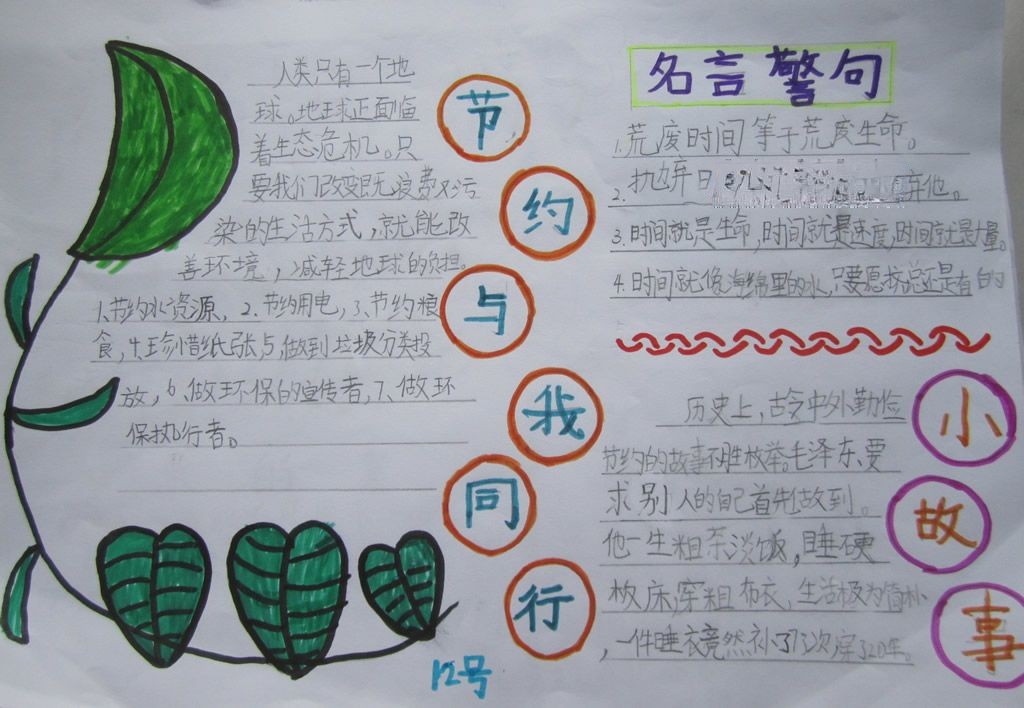 人类只有一个地
球。地球正面临
着生态危机。只
要我们改变既无浪费又污
染的生活方式，就能改
善环境，减轻地球的负担。
1.节约水资源，2.节约用电，3.节约粮
食，4.珍惜纸张，5，做到垃圾分类投
放，6、做环保的宣传者，7、做环
保执行者。
节
约
与
我
同
行
12号
名言警句
1.荒废时间等于荒废生命。
2.抛弃时 弃他。
3.时间就是生命，时间就是速度，时间就是力量。
4.时间就像海绵里的水，只要愿挤总还是有的
历史上，古今中外勤俭
节约的故事不胜枚举。毛泽东、要
求别人的自己首先做到。
他一生粗茶淡饭，睡硬
板床，穿粗布衣，生活极为简朴
，一件睡衣竟然补了73次穿了20年。
小
故
事